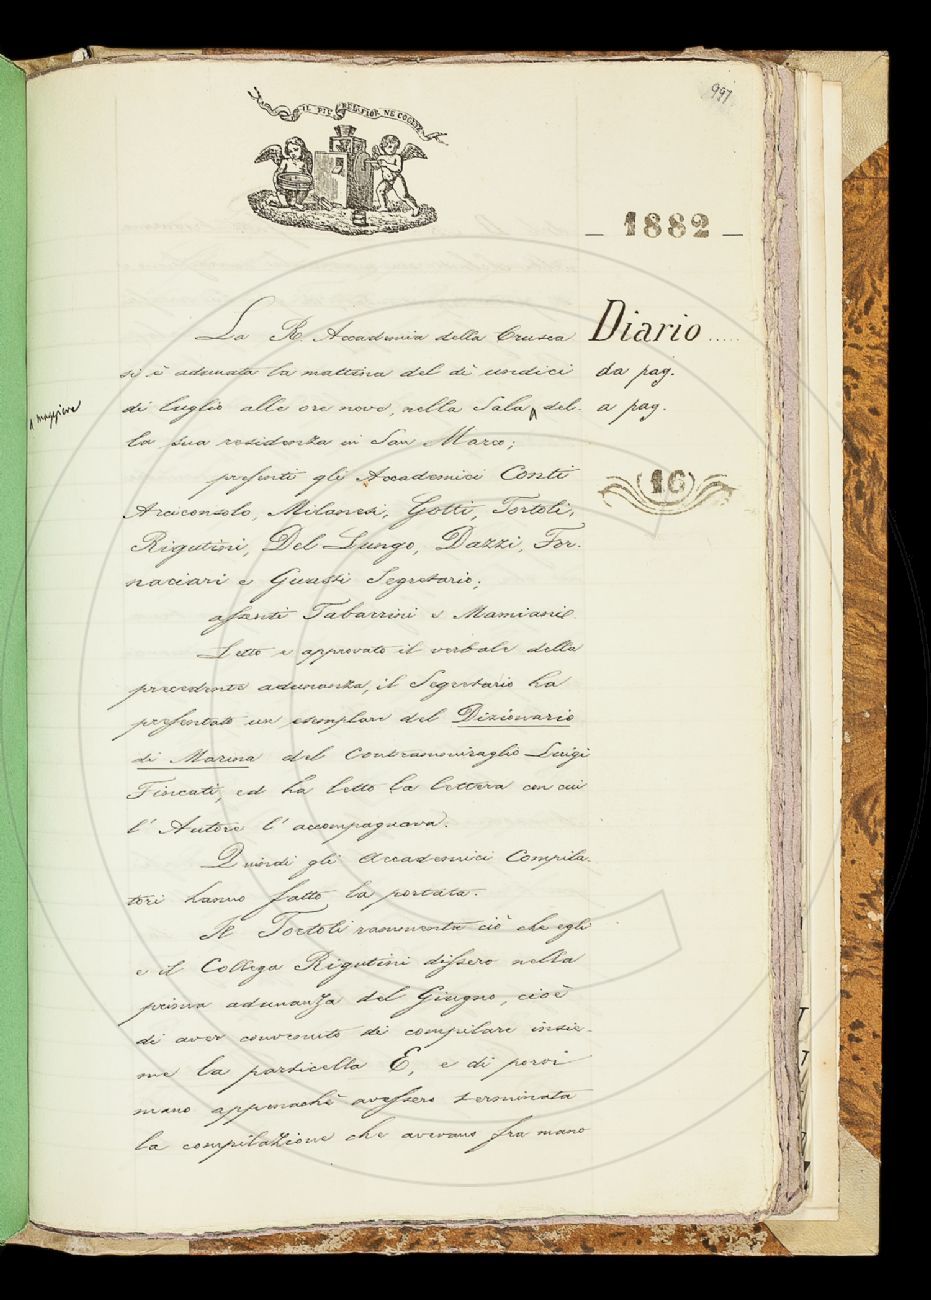 997
IL PIÙ BEL FIOR NE COGLIE
– 1882 –
Diario .....
da pag.
a pag.
16
La R. Accademia della Crusca
si è adunata la mattina del dì undici
di luglio alle ore nove, nella Sala ^ del-
^ maggiore
la sua residenza in San Marco;
presenti gli Accademici Conti
Arciconsolo, Milanesi, Gotti, Tortoli,
Rigutini, Del Lungo, Dazzi, For-
naciari e Guasti Segretario;
assenti Tabarrini e Mamiani.
Letto e approvato il verbale della
precedente adunanza, il Segretario ha
presentato un esemplare del Dizionario
di Marina del Contrammiraglio Luigi
Fincati, ed ha letto la lettera con cui
l' Autore l' accompagnava.
Quindi gli Accademici Compila-
tori hanno fatto la portata.
Il Tortoli rammenta ciò che egli
e il Collega Rigutini dissero nella
prima adunanza del Giugno, cioè
di aver convenuto di compilare insie-
me la particella E, e di porvi
mano appenachè avessero terminata
la compilazione che avevano fra mano